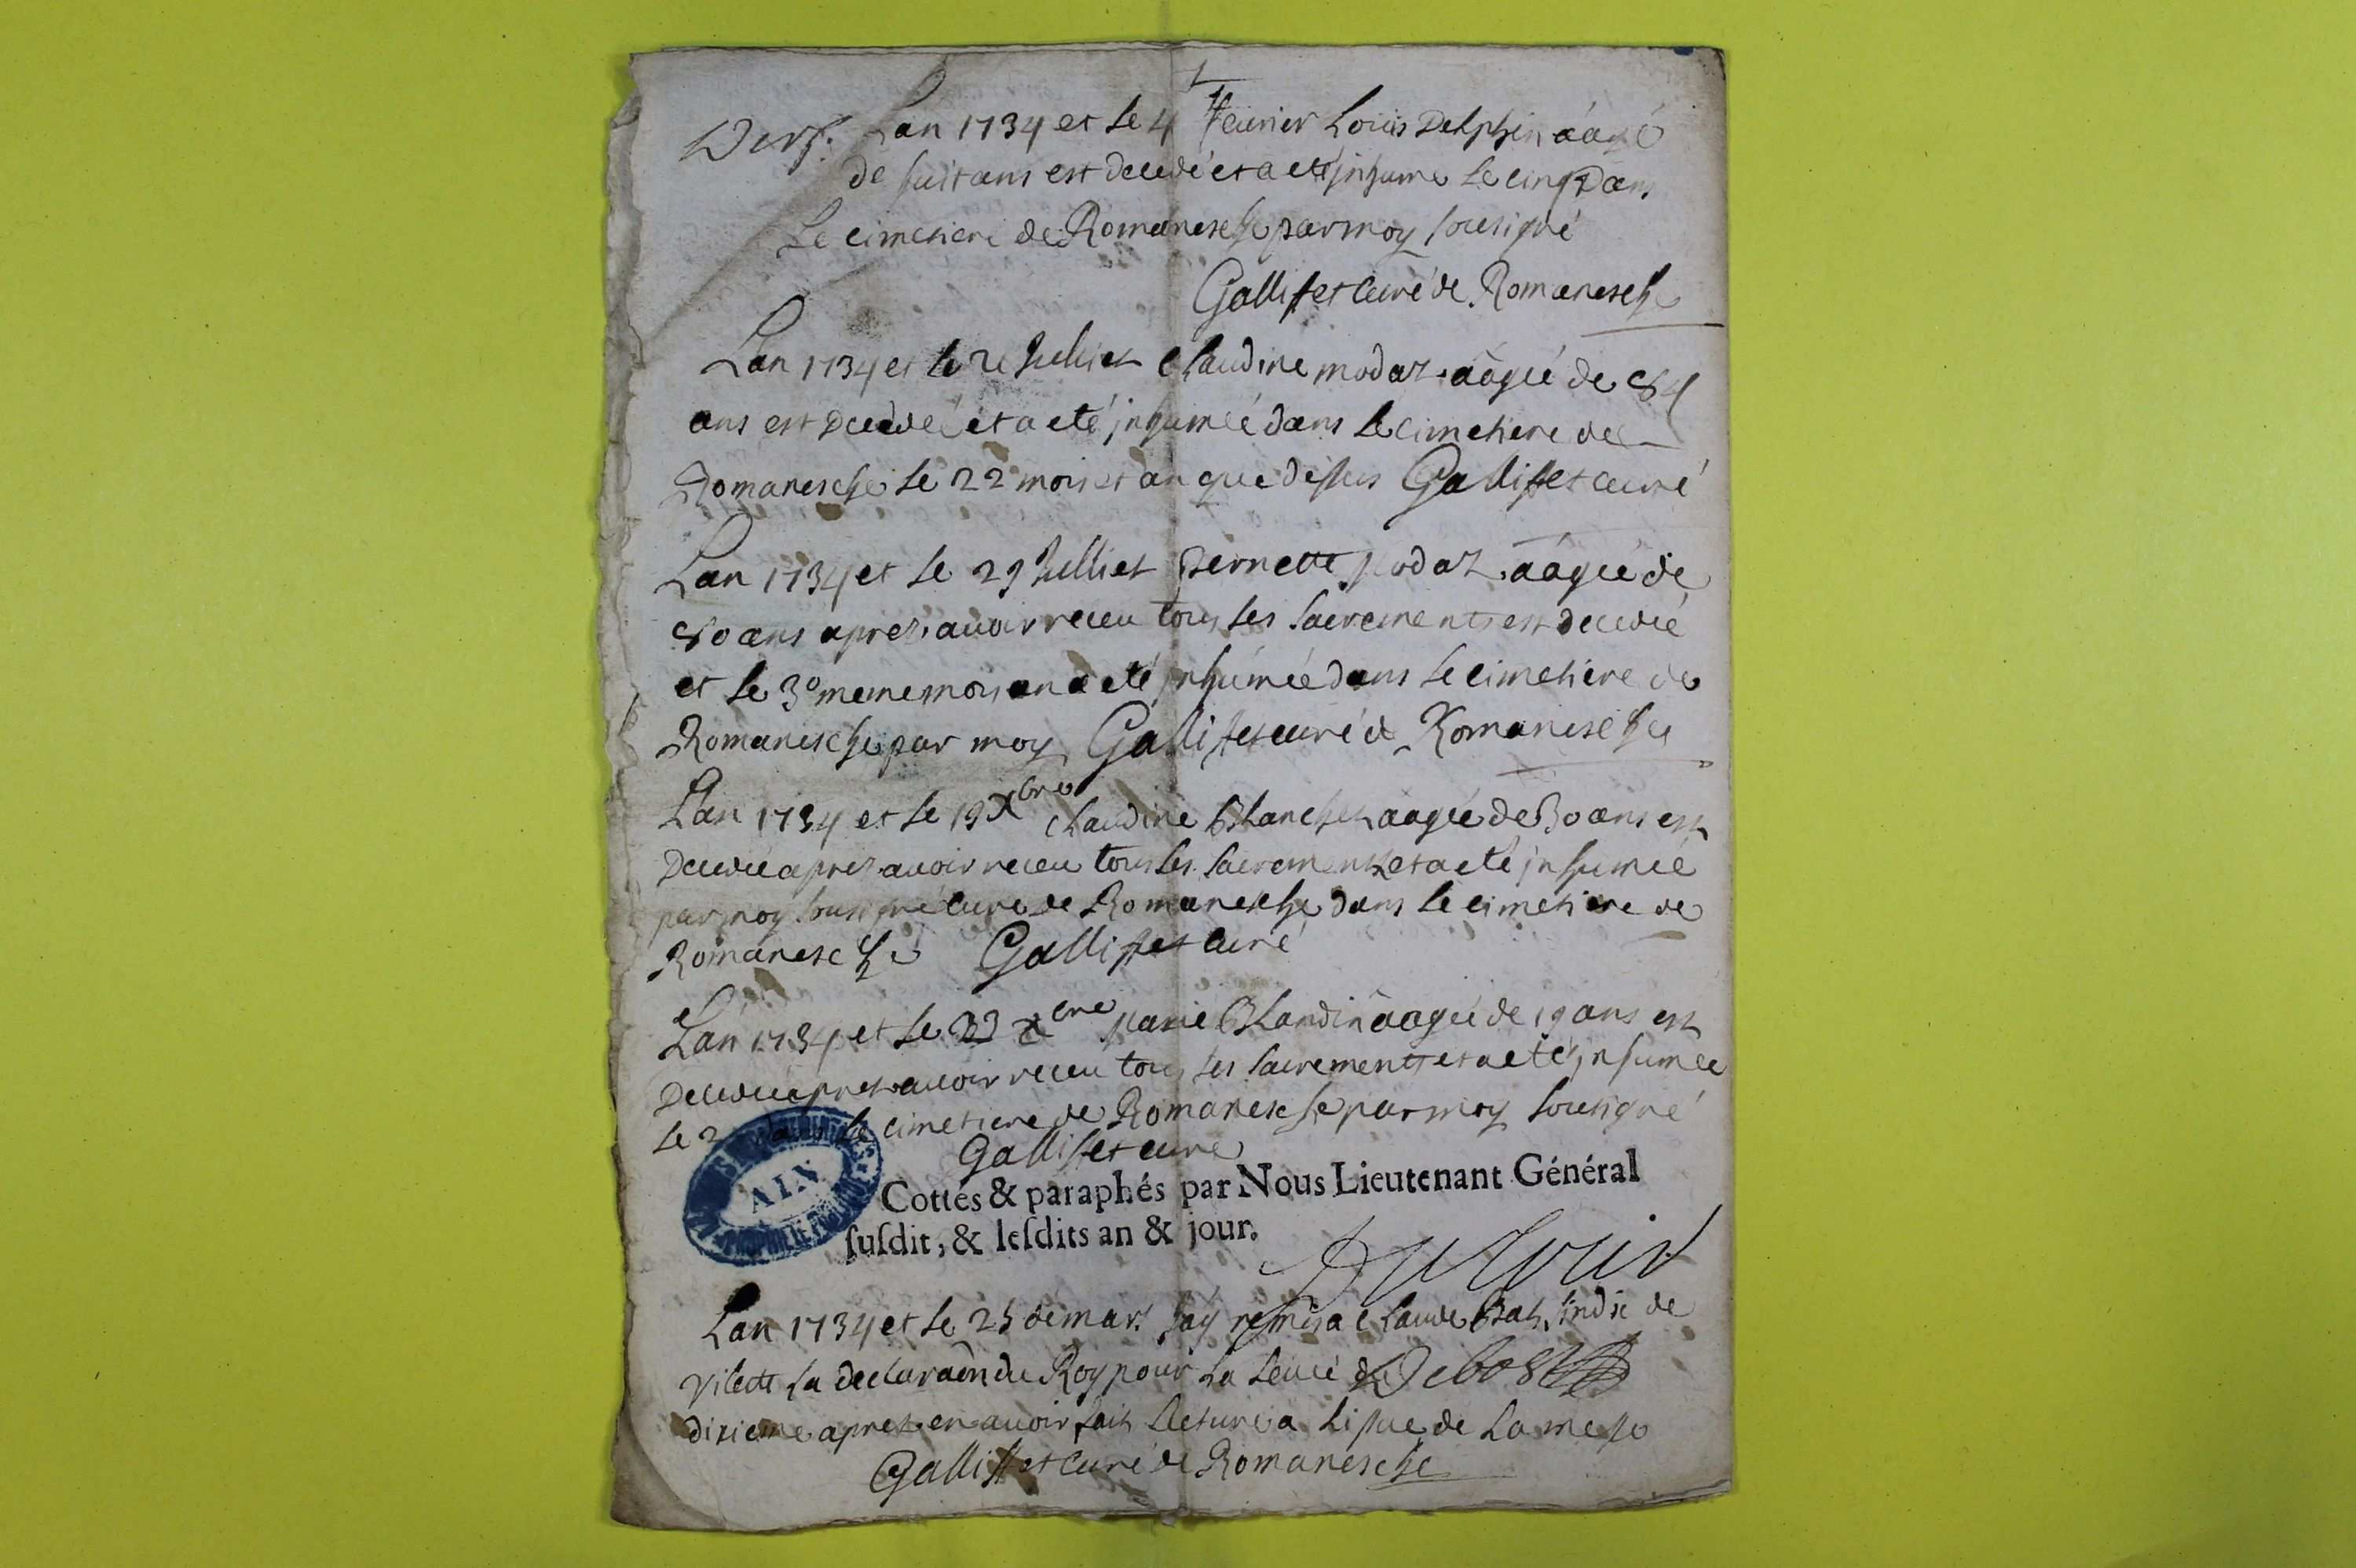 Lan 1734 et le 4 feurier Louis Delphin áagé
de huit ans est decedé et a eté jnhumé le cinq Dans
Le cimetiere de Romanesche par moy sousigné
Galliffet curé de Romanesche
Lan 1734 et le 21 Julliet Claudine modaz áagée de 84
ans est Decedeé et a eté jnhumeé dans le cimetiere de
Romanesche le 22 mois et an que dessus Galliffet curé
Lan 1734 et le 29 Julliet Pernette áagée de
80 ans aprez auoir receu tous les sacrements est decedeé
et le 30 meme mois an a eté jnhúmeé dans le cimetiere de
Romanesche par moy Galliffet curé de Romanesche
Lan 1734 et le 19 Xbre Claudine Blanchet aagée de 30 ans est
Decedeé aprez auoir receu tous les sacrements et a eté jnhumeé
par moy sousigné curé de Romanesche dans le cimetiere de
Romanesche Galliffet curé
Lan 1734 et le 23 Xbre Marie Blandin áagée de 19 ans est
Decedeé aprez auoir receu tous les sacrements et a eté jnhumeé
le 2 dans le cimetiere de Romanesche par moy sousigné
Galliffet curé
AIN
Cottés & paraphés par Nous Lieutenant Général
ſuſdit, & leſdits an & jour.
Lan 1734 et le 25 de mars Jáy remis a Claude sindic de
Vilette La declaraôn du Roy pour La leueé du
dixieme aprez en auoir fait lecture a Lissue de La messe
Galliffet curé de Romanesche